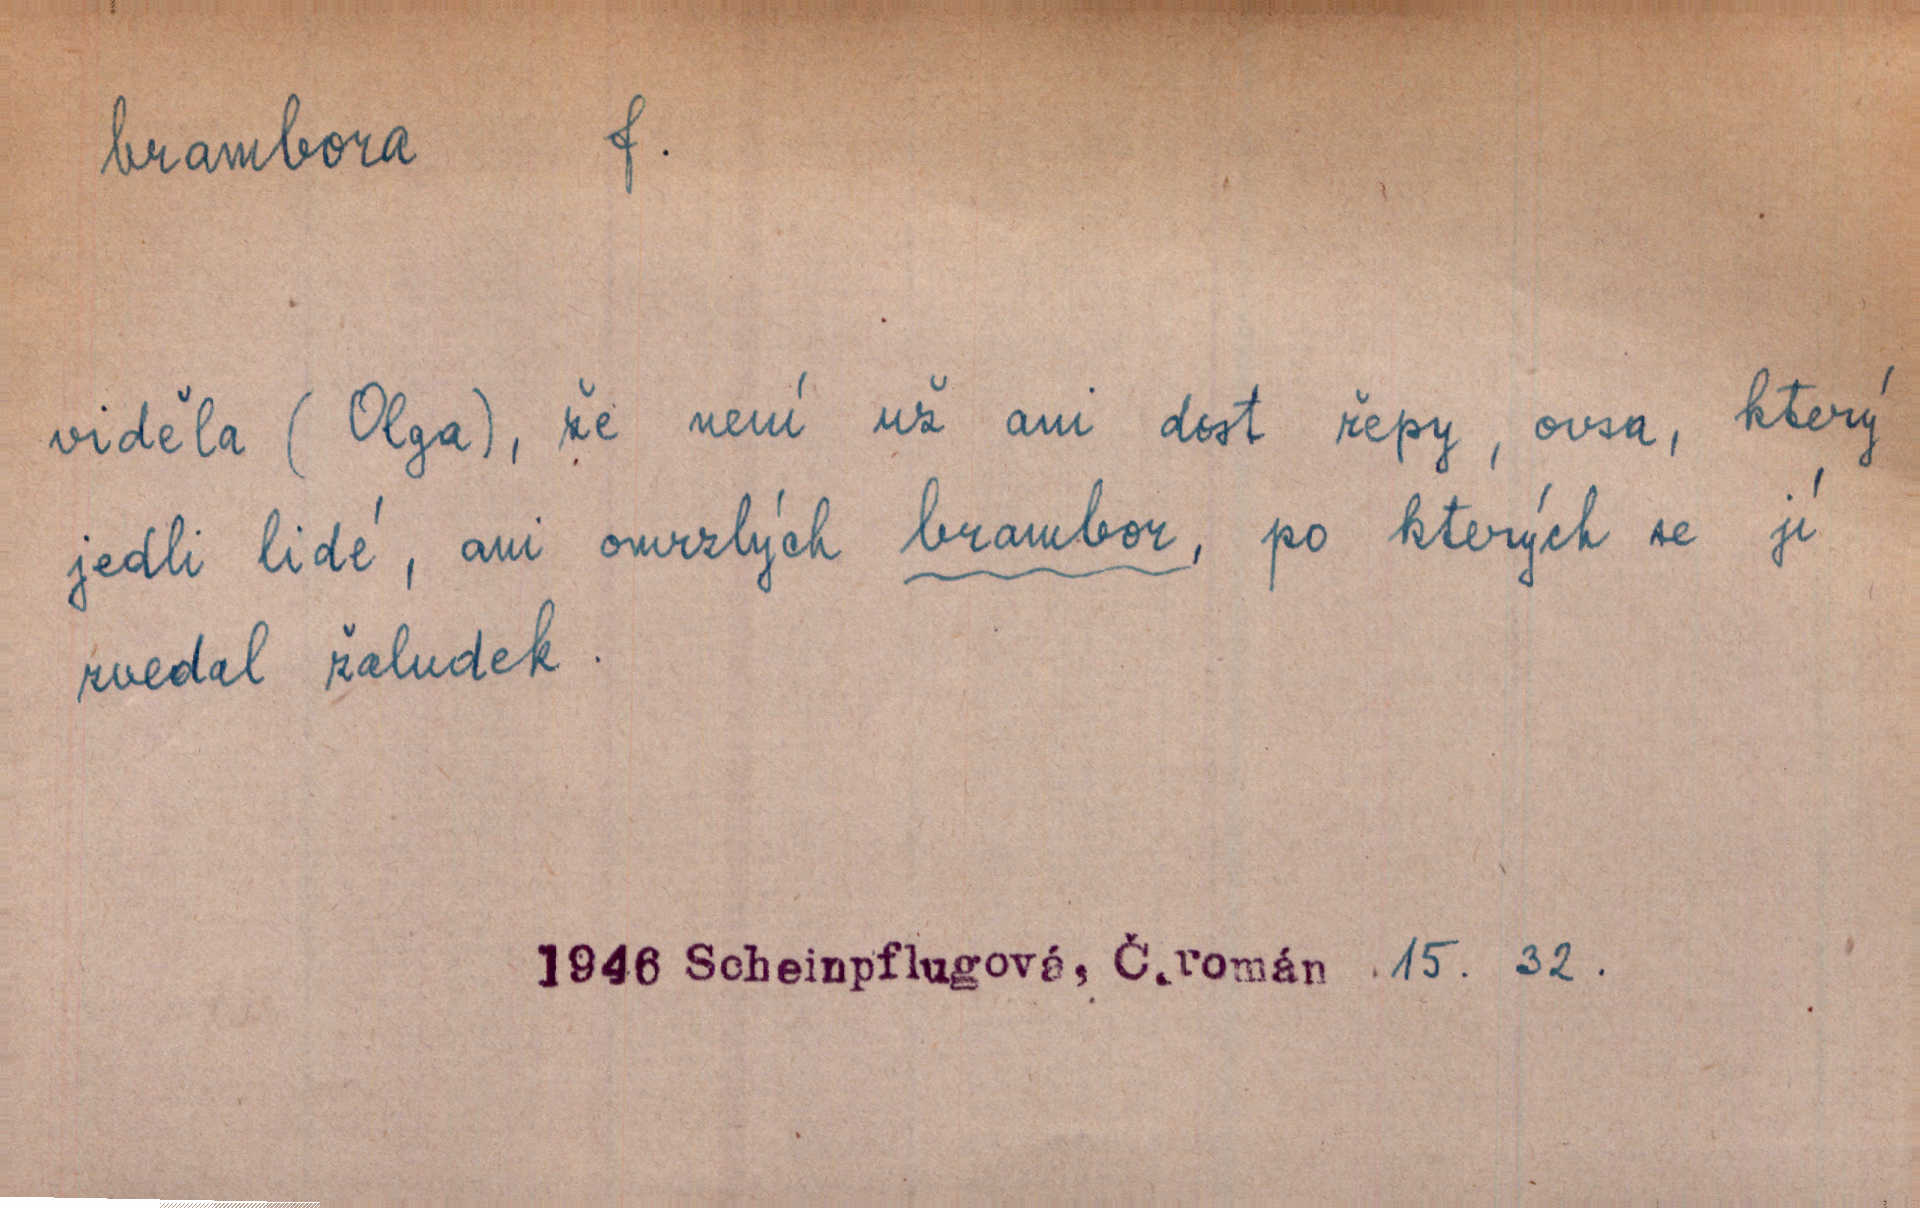 brambora f.
viděla (Olga), že není už ani dost řepy, ovsa, který
jedli lidé, ani omrzlých brambor, po kterých se jí
zvedal žaludek.
1946 Scheinpflugová, Č.román 15. 32.